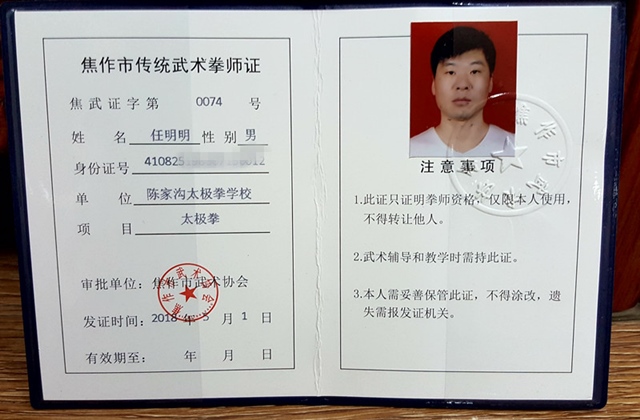 焦作市传统武术拳师证
焦武证字第 0074 号
姓名 任明明 性别 男
身份证号 410825
单位 陈家沟太极拳学校
项目 太极拳
审批单位:焦作市武术协会
发证时间: 2018 年 5 月 1 日
有效期至: 年 月 日
注意事项
1.此证只证明拳师资格,仅限本人使用,
不得转让他人。
2.武术辅导和教学时需持此证。
3.本人需妥善保管此证,不得涂改,遗
失需报发证机关。